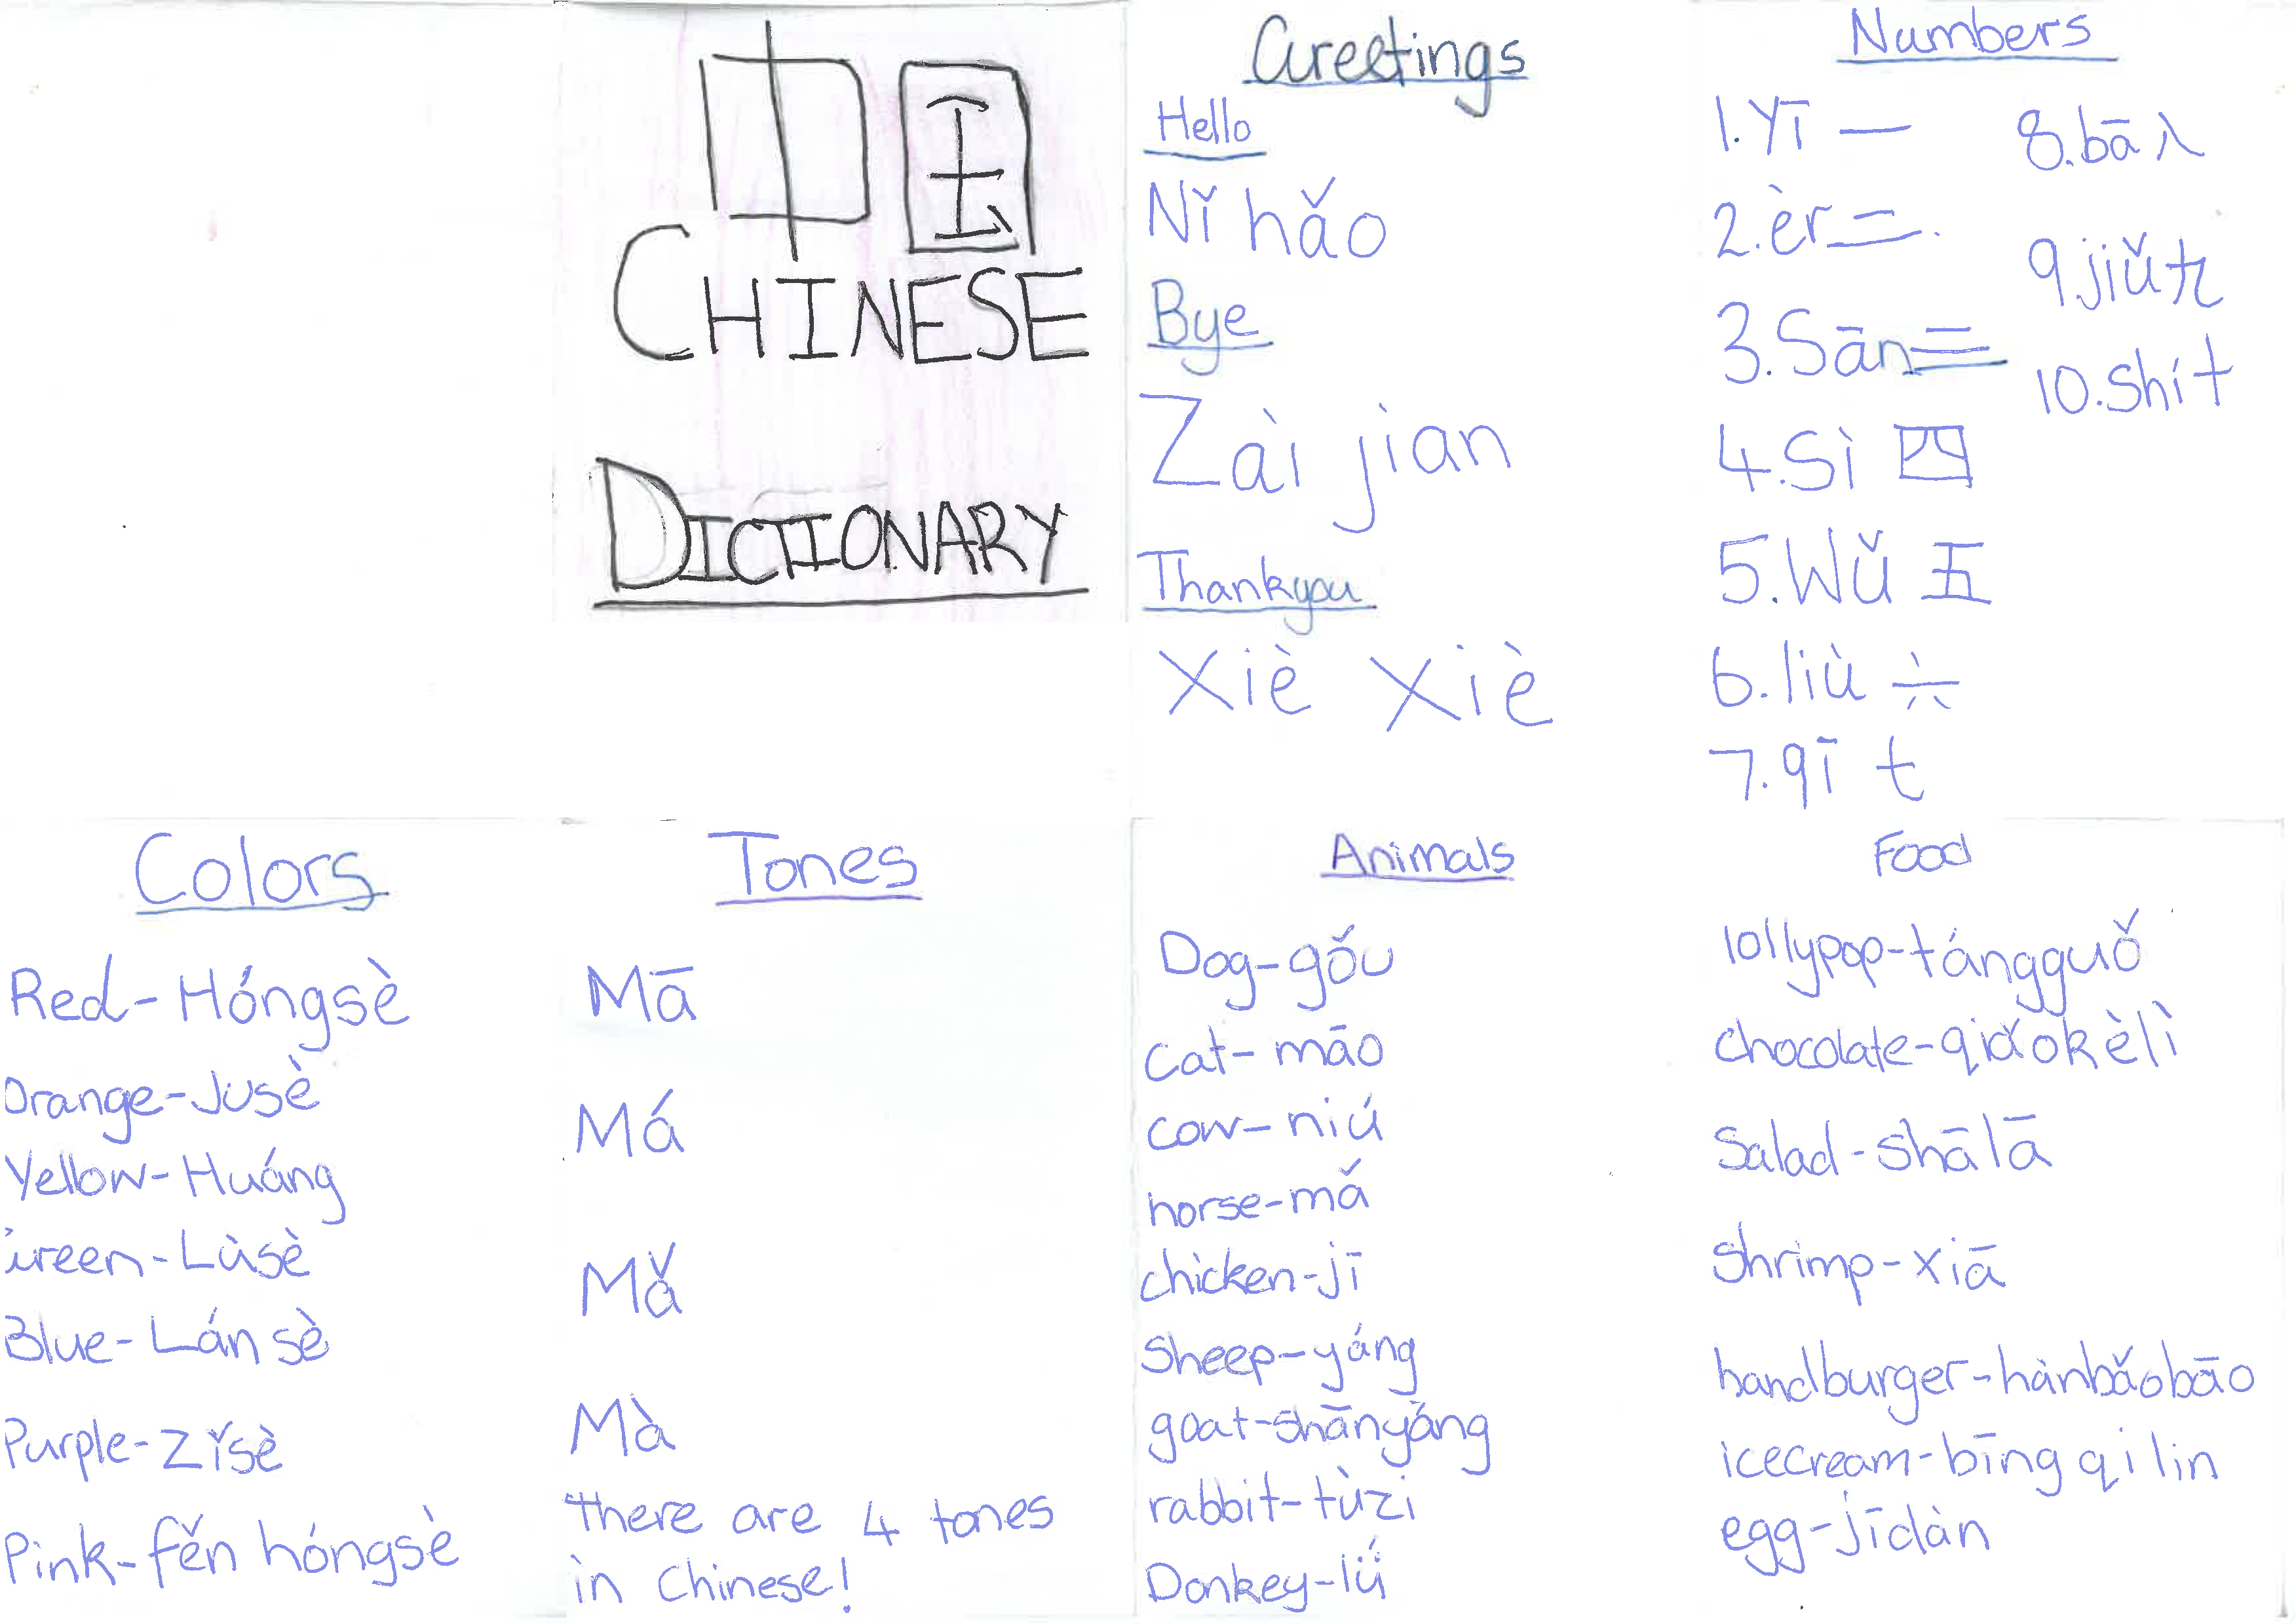 中国
CHINESE
DICTIONARY
Greetings
Hello
Nǐ hǎo
Bye
Zài jian
Thankyou
Xiè Xiè
Numbers
1. Yī 一
2. èr 二
3. Sān 三
4. Sì 四
5. Wǔ 五
6. liù 六
7. qī 七
8. bā 八
9 jiǔ 九
10. Shí 十
Colors
Red - Hóngsè
Orange - Jusè
Yellow - Huáng
Green - Lùsè
Blue - Lán sè
Purple - Zǐsè
Pink - fěn hóngsè
Tones
Mā
Má
Mǎ
Mà
There are 4 tones
in Chinese!
Animals
Dog - gǒu
Cat - māo
cow - niú
horse - mǎ
chicken - jī
Sheep - yáng
goat - shānyáng
rabbit - tùzi
Donkey - lǘ
Food
lollypop - tángguǒ
chocolate - qiǎokèlì
Salad - shālā
Shrimp - xiā
handburger - hànbǎobāo
icecream - bīng qi lin
egg - jīdàn